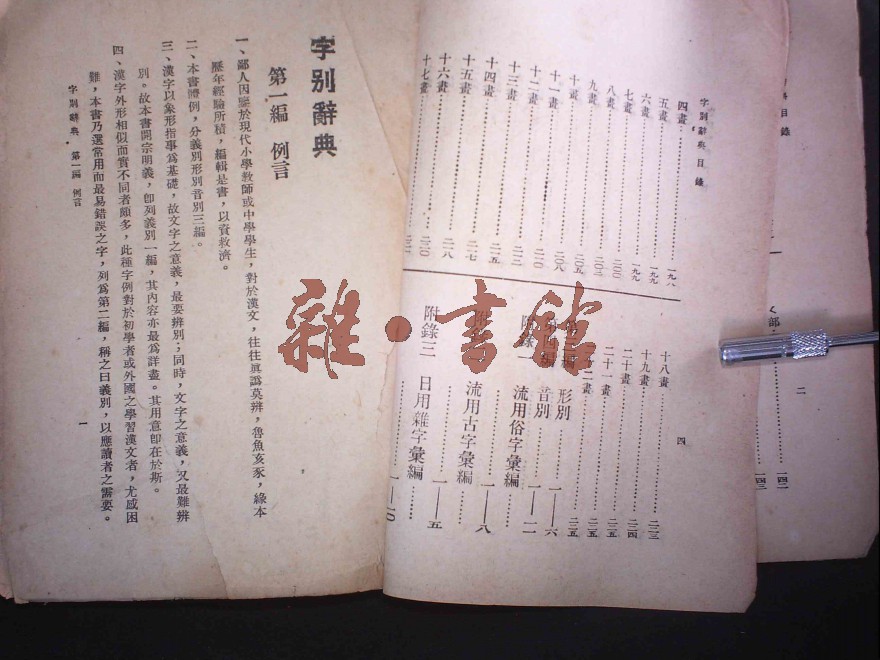 目錄
く部
二
一四二
一四三
字別辭典目錄
四畫……一九八
五畫……一九九
六畫……一九九
七畫……二〇〇
八畫……二〇二
九畫……二〇五
十畫……二〇八
十一畫……二一〇
十二畫……二一二
十三畫……二一五
十四畫……二一七
十五畫……二一八
十六畫……二二〇
十七畫
四
十八畫……二二三
十九畫……二二四
二十畫……二二五
二十一畫……二二五
二十二畫……二二五
形別……一—六
音別……一—二
附錄一 流用俗字彙編……一—八
附錄 流用古字彙編……一—五
附錄三 日用雜字彙編……一—一〇
字別辭典
第一編 例言
一、鄙人因鑒於現代小學教師或中學學生，對於漢文，往往眞譌莫辨，魯魚亥豕，緣本
歷年經驗所積，編輯是書，以資救濟。
二、本書體例，分義別形別音別三編。
三、漢字以象形指事爲基礎，故文字之意義，最要辨別；同時，文字之意義，又最難辨
別。故本書開宗明義，卽列義別一編，其內容亦最爲詳盡。其用意卽在於斯。
四、漢字外形相似而實不同者頗多，此種字例對於初學者或外國之學習漢文者，尤感困
難，本書乃選常用而最易錯誤之字，列爲第二編，稱之曰義別，以應讀者之需要。
字別辭典 第一編 例言
一
雜·書館